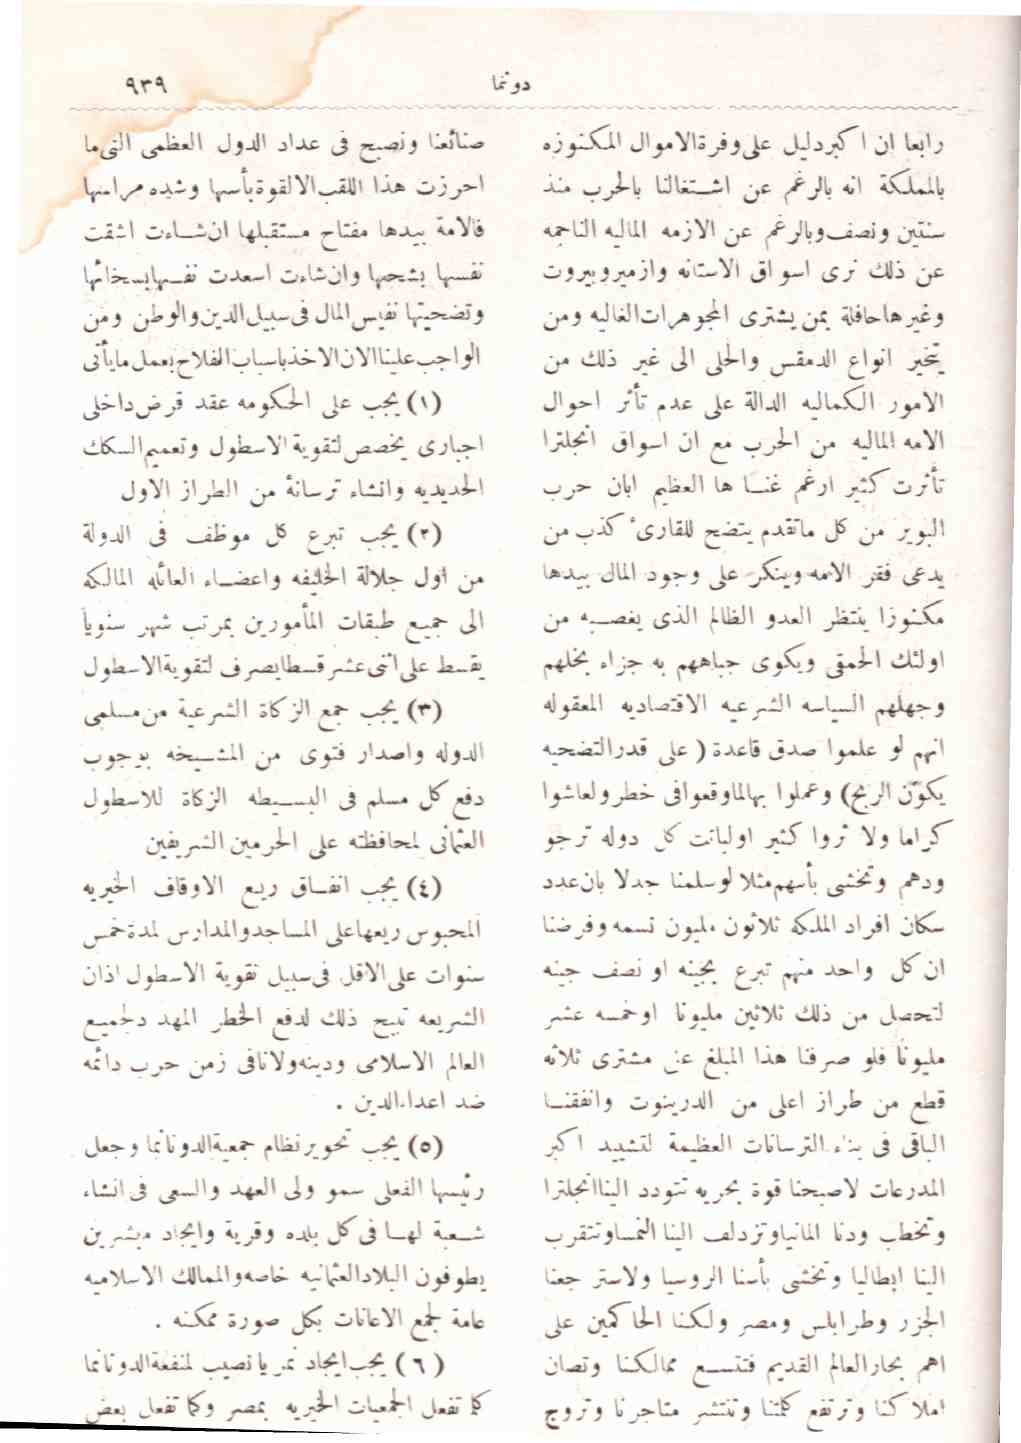 ٩٣٩
دونما
رابعا ان اكبر دليل على وفرة الاموال المكنوزه
بالمملكة انه بالرغم عن اشتغالنا بالحرب منذ
سنتين ونصف وبالرغم عن الازمه الماليه الناجمه
عن ذلك نرى اسواق الاستانه وازمير وبيروت
وغيرها حافلة بمن يشترى المجوهرات الغاليه ومن
يتخير انواع الدمقس والحلى الى غير ذلك من
الامور الكماليه الدالة على عدم تأثر احوال
الامه الماليه من الحرب مع ان اسواق انجلترا
تأثرت كثير ارغم غناها العظيم ابان حرب
البوير من كل ماتقدم يتضح للقارىء كذب من
يدعى فقر الامه وينكر على وجود المال بيدها
مكنوزا ينتظر العدو الظالم الذى يغصبه من
اولئك الحمقى ويكوى جباههم به جزاء بخلهم
وجهلهم السياسه الشرعيه الاقتصاديه المعقوله
انهم لو علموا صدق قاعدة ( على قدر التضحيه
يكوّن الربح) وعملوا بها لما وقعوا فى خطر ولعاشوا
كراما ولا ثروا كثير اولباتت كل دوله ترجو
ودهم وتخشى بأسهم مثلا لو سلمنا جدلا بان عدد
سكان افراد الملكه ثلاثون مليون نسمه وفرضنا
ان كل واحد منهم تبرع بجينه او نصف جينه
لتحصل من ذلك ثلاثين مليونا اوخمسه عشر
مليونا فلو صرفنا هذا المبلغ عن مشترى ثلاثه
قطع من طراز اعلى من الدرينوت وانفقنا
الباقى فى بناء الترسانات العظيمة لتشييد اكبر
المدرعات لاصبحنا قوة بحريه تتودد الينا انجلترا
وتخطب ودنا المانيا وتزدلف الينا النمسا وتتقرب
الينا ايطاليا وتخشى بأسنا الروسيا ولاستر جعنا
الجزر وطرابلس ومصر ولكنا الحاكمين على
اهم بحار العالم القديم فتتسع ممالكنا وتصان
املاكنا وترتفع كلمتنا وتنتشر متاجرنا وتروج
صنائعنا ونصبح فى عداد الدول العظمى التى ما
احرزت هذا اللقب الا لقوة بأسها وشده مراسها
فالامة بيدها مفتاح مستقبلها ان شاءت اشقت
نفسها بشحها وان شاءت اسعدت نفسها بسخائها
وتضحيتها نفيس المال فى سبيل الدين والوطن ومن
الواجب علينا الان الاخذ باسباب الفلاح بعمل ما يأتى
(١) يجب على الحكومه عقد قرض داخلى
اجبارى يخصص لتقوية الاسطول وتعميم السكك
الحديديه وانشاء ترسانة من الطراز الاول
(٢) يجب تبرع كل موظف فى الدولة
من اول جلالة الخليفه واعضاء العائله المالكه
الى جميع طبقات المأمورين بمرتب شهر سنوياً
يقسط على اثنى عشر قسطا يصرف لتقوية الاسطول
(٣) يجب جمع الزكاة الشرعية من مسلمى
الدوله واصدار فتوى من المشيخه بوجوب
دفع كل مسلم فى البسيطه الزكاة للاسطول
العثمانى لمحافظته على الحرمين الشريفين
(٤) يجب انفاق ريع الاوقاف الخيريه
المحبوس ريعها على المساجد والمدارس لمدة خمس
سنوات على الاقل فى سبيل تقوية الاسطول اذان
الشريعه تبيح ذلك لدفع الخطر المهدد لجميع
العالم الاسلامى ودينه ولانا فى زمن حرب دائمه
ضد اعداء الدين .
(٥) يجب تحوير نظام جمعية الدونانما وجعل
رئيسها الفعلى سمو ولى العهد والسعى فى انشاء
شعبة لها فى كل بلده وقرية وايجاد مبشرين
يطوفون البلاد العثمانيه خاصه والممالك الاسلاميه
عامة لجمع الاعانات بكل صورة ممكنه .
(٦) يجب ايجاد نمر يا نصيب لمنفعة الدونانما
كما تفعل الجمعيات الخيريه بمصر وكما تفعل بعض